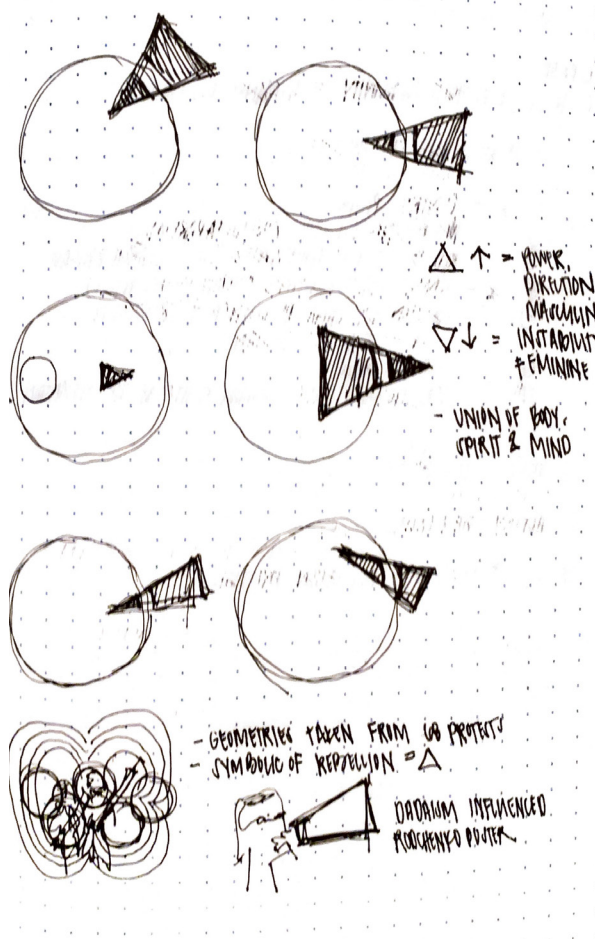 △ ↑ = POWER,
DIRECTION
MASCULIN
▽ ↓ = INSTABILIT
FEMININE
- UNION OF BODY,
SPIRIT & MIND
- GEOMETRIES TAKEN FROM 68 PROTESTS
- SYMBOLIC OF REBELLION = △
DADAISM INFLUENCED
RODCHENKO POSTER